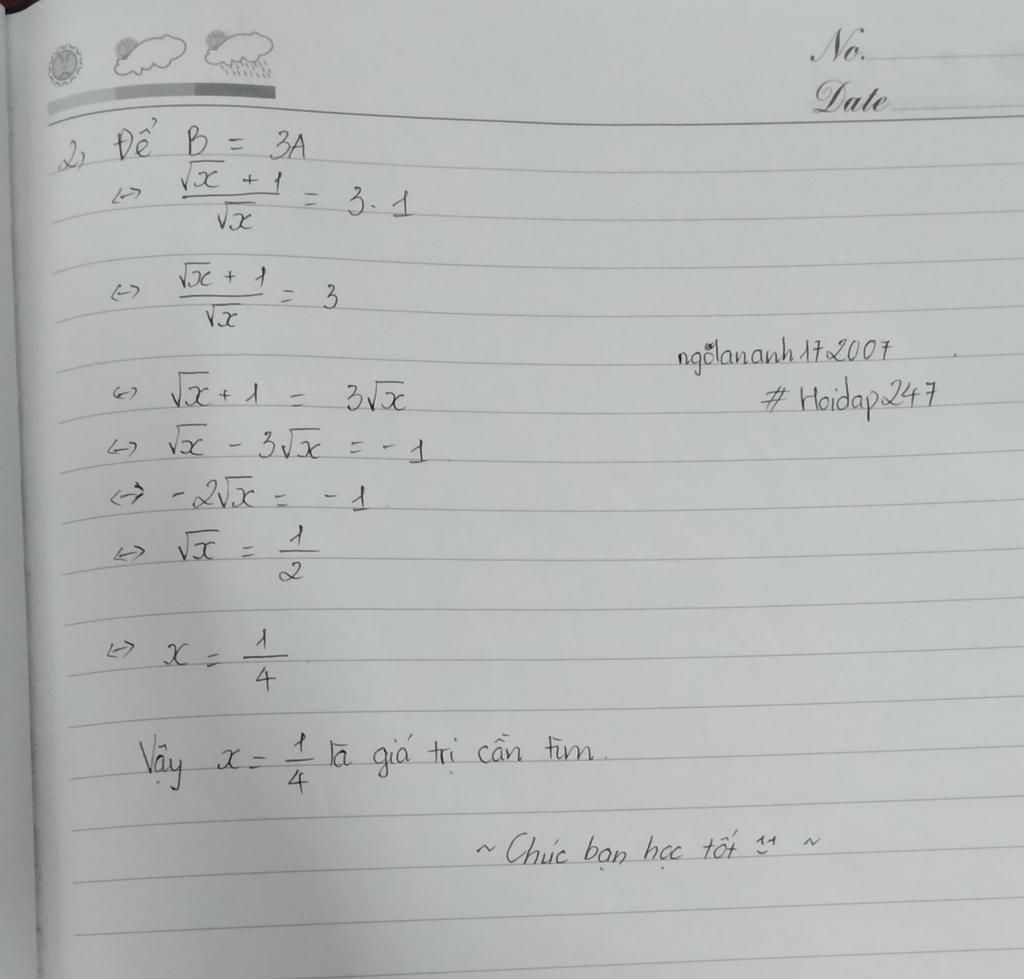 No.
Date
2, Để B = 3A
<-> (√x + 1)/√x = 3 . 1
<-> (√x + 1)/√x = 3
ngôlananh172007
<-> √x + 1 = 3√x
# Hoidap247
<-> √x - 3√x = - 1
<-> -2√x = - 1
<-> √x = 1/2
<-> x = 1/4
Vậy x = 1/4 là giá trị cần tìm.
~ Chúc bạn học tốt ~